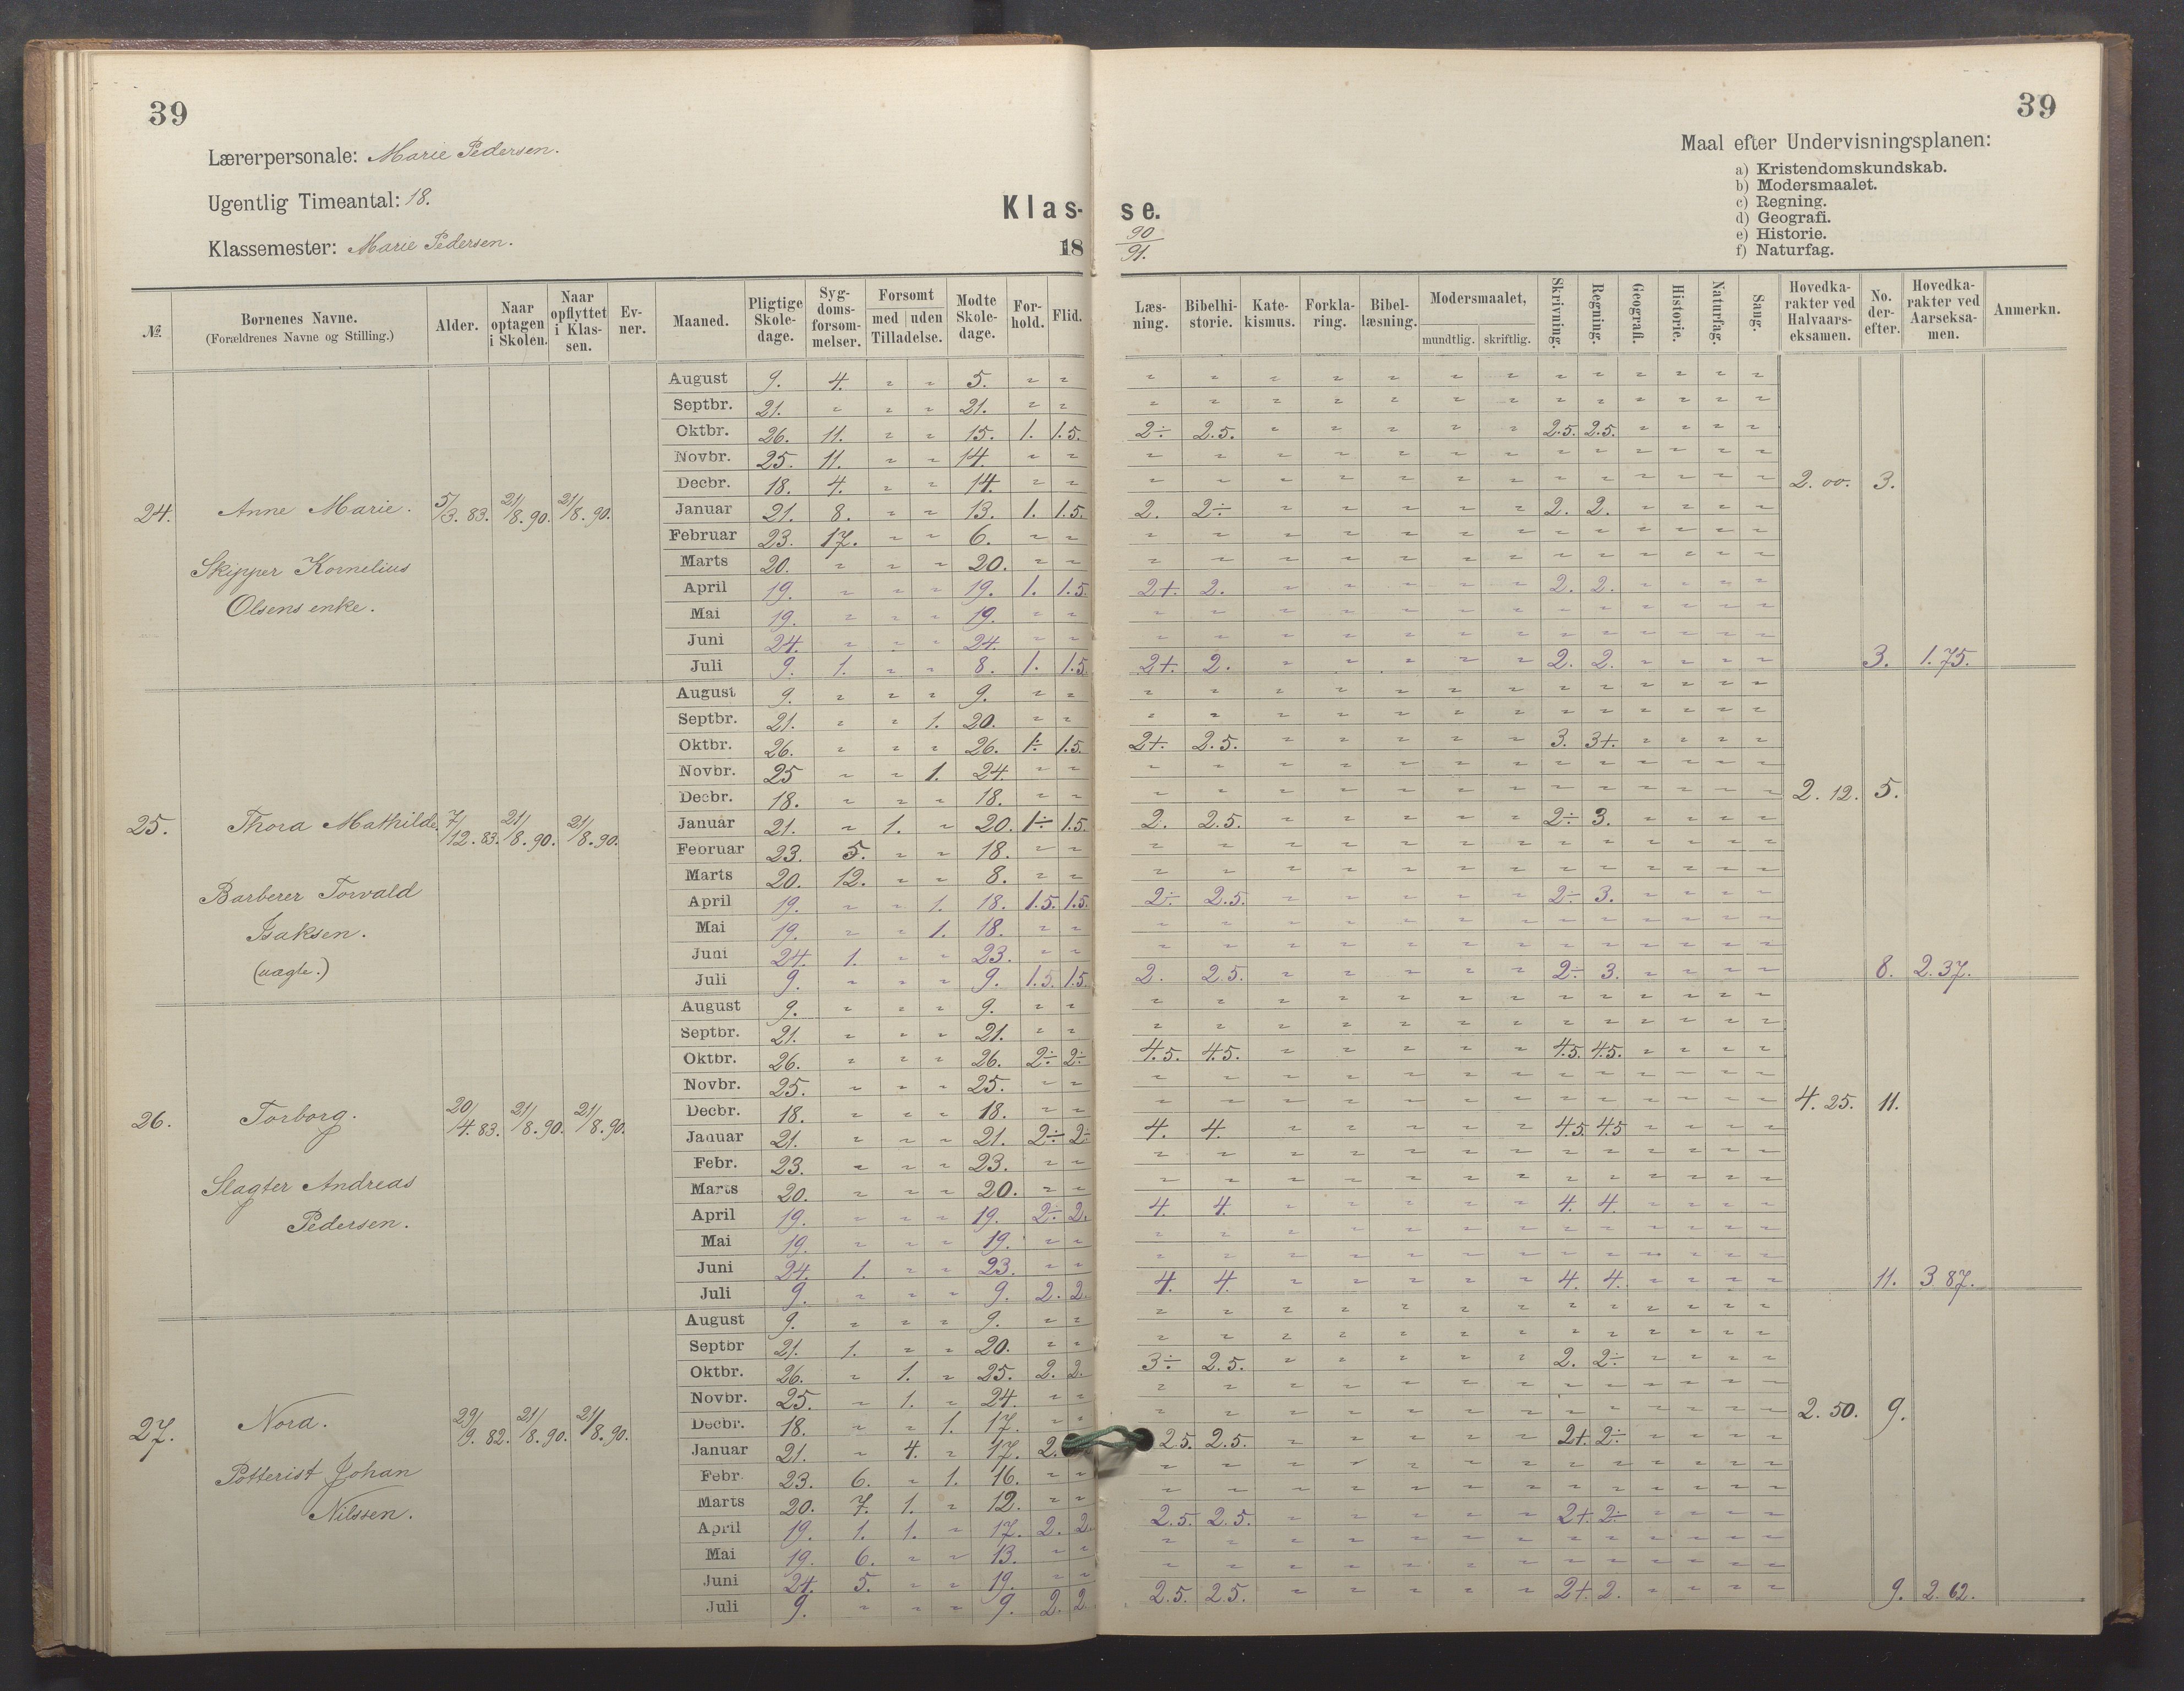 39
39
Lærerpersonale: Marie Pedersen.
Ugentlig Timeantal: 18.
Klassemester: Marie Pedersen.
Klas- se.
18 90/91.
Maal efter Undervisningsplanen:
a) Kristendomskundskab.
b) Modersmaalet.
c) Regning.
d) Geografi.
e) Historie.
f) Naturfag.
№ Børnenes Navne. (Forældrenes Navne og Stilling.) Alder. Naar optagen i Skolen. Naar opflyttet i Klassen. Evner. Maaned. Pligtige Skoledage. Sygdomsforsømmelser. Forsømt med uden Tilladelse. Mødte Skoledage. Forhold. Flid. Læsning. Bibelhistorie. Katekismus. Forklaring. Bibellæsning. Modersmaalet, mundtlig. skriftlig. Skrivning. Regning. Geografi. Historie. Naturfag. Sang. Hovedkarakter ved Halvaarseksamen. No. derefter. Hovedkarakter ved Aarseksamen. Anmerkn.
24. Anne Marie. 5/3. 83. 21/8. 90. 21/8. 90.
Skipper Kornelius
Olsens enke.
August 9. 4. " " 5. " " " " " " " " " " " " " " "
Septbr. 21. " " " 21. " " " " " " " " " " " " " " "
Oktbr. 26. 11. " " 15. 1. 1.5. 2÷ 2.5. " " " " " 2.5. 2.5. " " " "
Novbr. 25. 11. " " 14. " " " " " " " " " " " " " " "
Decbr. 18. 4. " " 14. " " " " " " " " " " " " " " " 2.00. 3.
Januar 21. 8. " " 13. 1. 1.5. 2. 2÷ " " " " " 2. 2. " " " "
Februar 23. 17. " " 6. " " " " " " " " " " " " " " "
Marts 20. " " " 20. " " " " " " " " " " " " " " "
April 19. " " " 19. 1. 1.5. 2+. 2. " " " " " 2. 2. " " " "
Mai 19. " " " 19. " " " " " " " " " " " " " " "
Juni 24. " " " 24. " " " " " " " " " " " " " " "
Juli 9. 1. " " 8. 1. 1.5. 2+. 2. " " " " " 2. 2. " " " " 3. 1.75.
25. Thora Mathilde 7/12. 83. 21/8. 90. 21/8. 90.
Barberer Torvald
Isaksen.
(uægte.)
August 9. " " " 9. " " " " " " " " " " " " " " "
Septbr. 21. " " 1. 20. " " " " " " " " " " " " " " "
Oktbr. 26. " " " 26. 1÷ 1.5. 2+. 2.5. " " " " " 3. 3+. " " " "
Novbr. 25 " " 1. 24. " " " " " " " " " " " " " " "
Decbr. 18. " " " 18. " " " " " " " " " " " " " " " 2.12. 5.
Januar 21. " 1. " 20. 1÷ 1.5. 2. 2.5. " " " " " 2÷ 3. " " " "
Februar 23. 5. " " 18. " " " " " " " " " " " " " " "
Marts 20. 12. " " 8. " " " " " " " " " " " " " " "
April 19. " " 1. 18. 1.5. 1.5. 2÷ 2.5. " " " " " 2÷ 3. " " " "
Mai 19. " " 1. 18. " " " " " " " " " " " " " " "
Juni 24. 1. " " 23. " " " " " " " " " " " " " " "
Juli 9. " " " 9. 1.5. 1.5. 2. 2.5. " " " " " 2÷ 3. " " " " 8. 2.37.
26. Torborg. 20/4. 83. 21/8. 90. 21/8. 90.
Slagter Andreas
Pedersen.
August 9. " " " 9. " " " " " " " " " " " " " " "
Septbr. 21. " " " 21. " " " " " " " " " " " " " " "
Oktbr. 26. " " " 26. 2÷ 2÷ 4.5. 4.5. " " " " " 4.5. 4.5. " " " "
Novbr. 25. " " " 25. " " " " " " " " " " " " " " "
Decbr. 18. " " " 18. " " " " " " " " " " " " " " " 4.25. 11.
Januar 21. " " " 21. 2÷ 2÷ 4. 4. " " " " " 4.5. 4.5 " " " "
Febr. 23. " " " 23. " " " " " " " " " " " " " " "
Marts 20. " " " 20. " " " " " " " " " " " " " " "
April 19. " " " 19. 2÷ 2. 4. 4. " " " " " 4. 4. " " " "
Mai 19. " " " 19. " " " " " " " " " " " " " " "
Juni 24. 1. " " 23. " " " " " " " " " " " " " " "
Juli 9. " " " 9. 2. 2. 4. 4. " " " " " 4. 4. " " " " 11. 3 87.
27. Nora. 29/9. 82. 21/8. 90. 21/8. 90.
Potterist Johan
Nilssen.
August 9. " " " 9. " " " " " " " " " " " " " " "
Septbr 21. 1. " " 20. " " " " " " " " " " " " " " "
Oktbr. 26. " 1. " 25. 2. 2. 3÷ 2.5. " " " " " 2. 2÷ " " " "
Novbr. 25. " 1. " 24. " " " " " " " " " " " " " " "
Decbr. 18. " " 1. 17. " " " " " " " " " " " " " " " 2.50. 9.
Januar 21. " 4. " 17. 2. 2.5. 2.5. " " " " " 2+. 2÷ " " " "
Febr. 23. 6. " 1. 16. " " " " " " " " " " " " " " "
Marts 20. 7. 1. " 12. " " " " " " " " " " " " " " "
April 19. 1. 1. " 17. 2. 2. 2.5. 2.5. " " " " " 2+. 2÷ " " " "
Mai 19. 6. " " 13. " " " " " " " " " " " " " " "
Juni 24. 5. " " 19. " " " " " " " " " " " " " " "
Juli 9. " " " 9. 2. 2. 2.5. 2.5. " " " " " 2+. 2. " " " " 9. 2.62.